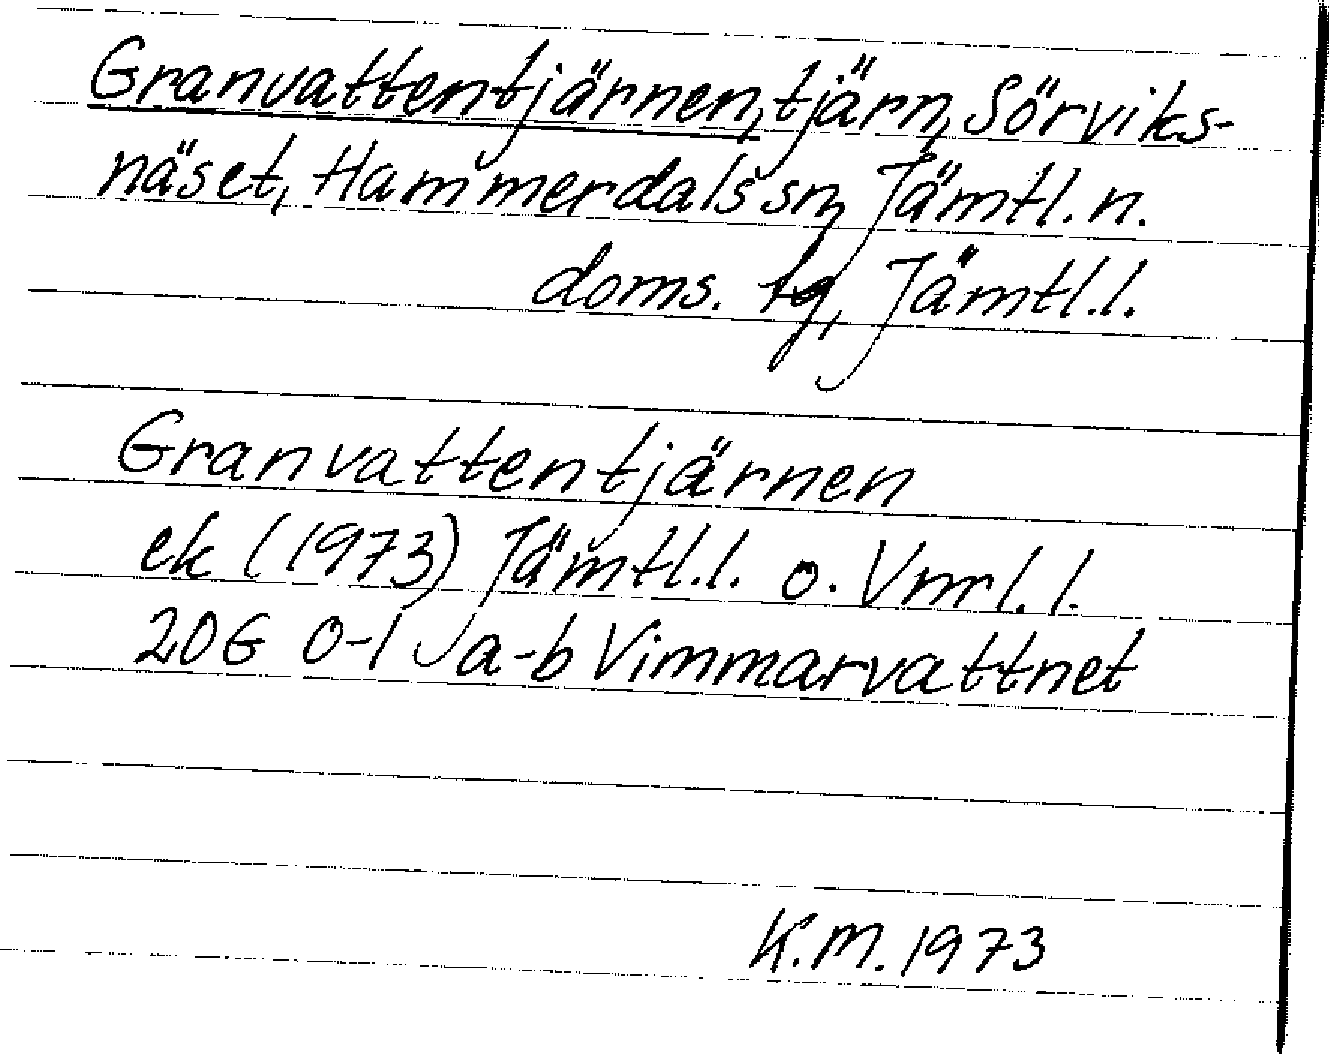 Granvattentjärnen, tjärn, Sörviks-
näset, Hammerdals sn, Jämtl. n.
doms. tg, Jämtl. l.
Granvattentjärnen
ek (1973) Jämtl. l. o. Vnrl. l.
20G 0-1 a-b Vimmarvattnet
K.M. 1973